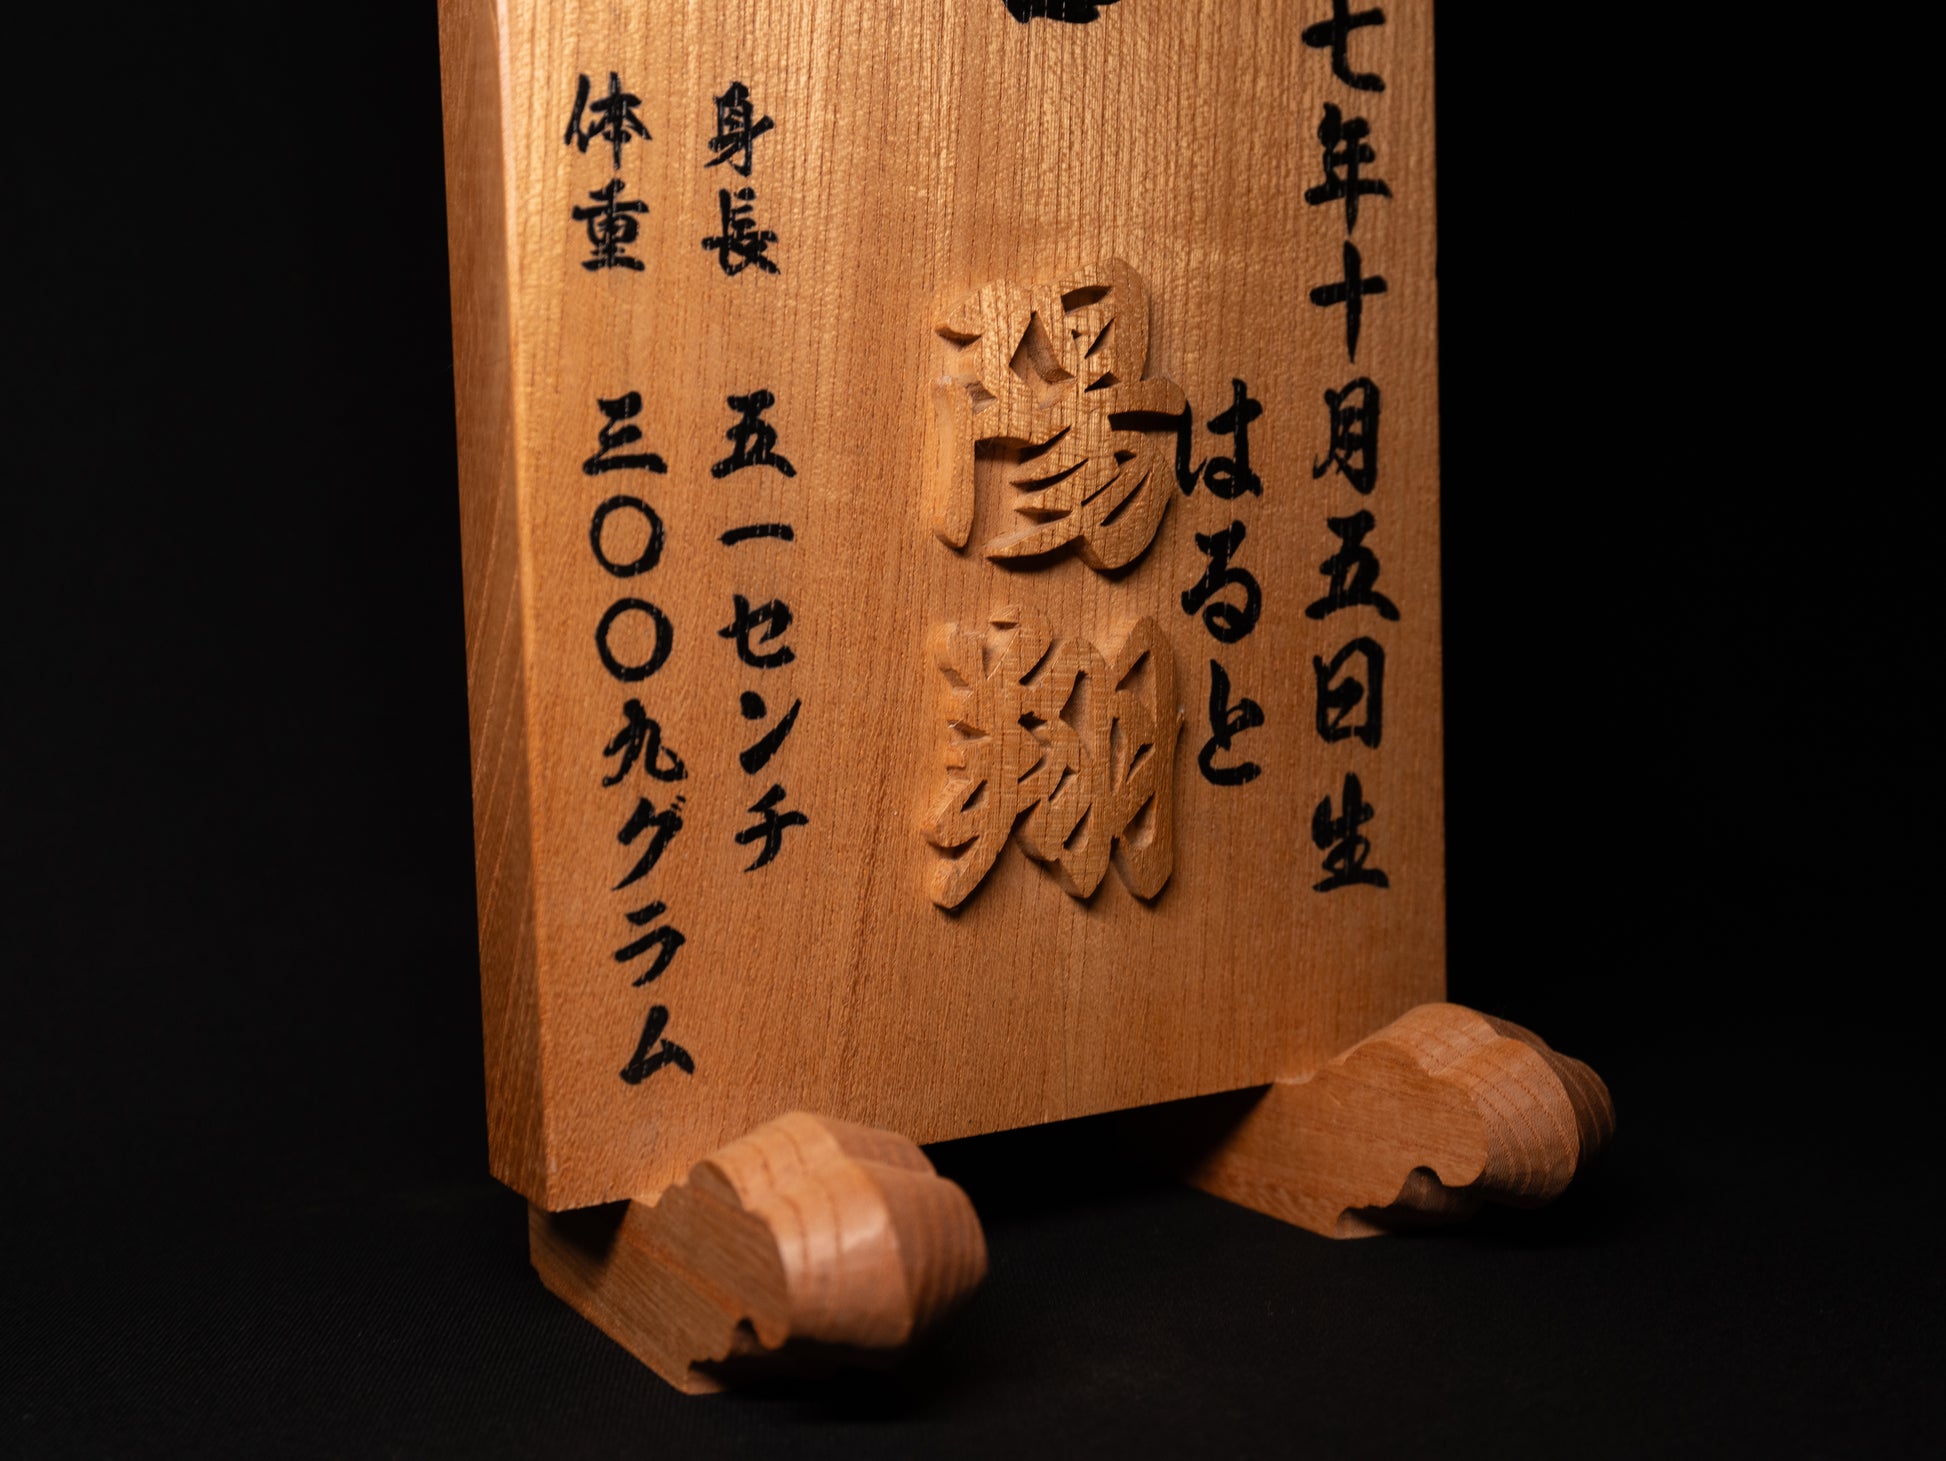 七年十月五日生
はると
陽翔
身長 五一センチ
体重 三〇〇九グラム